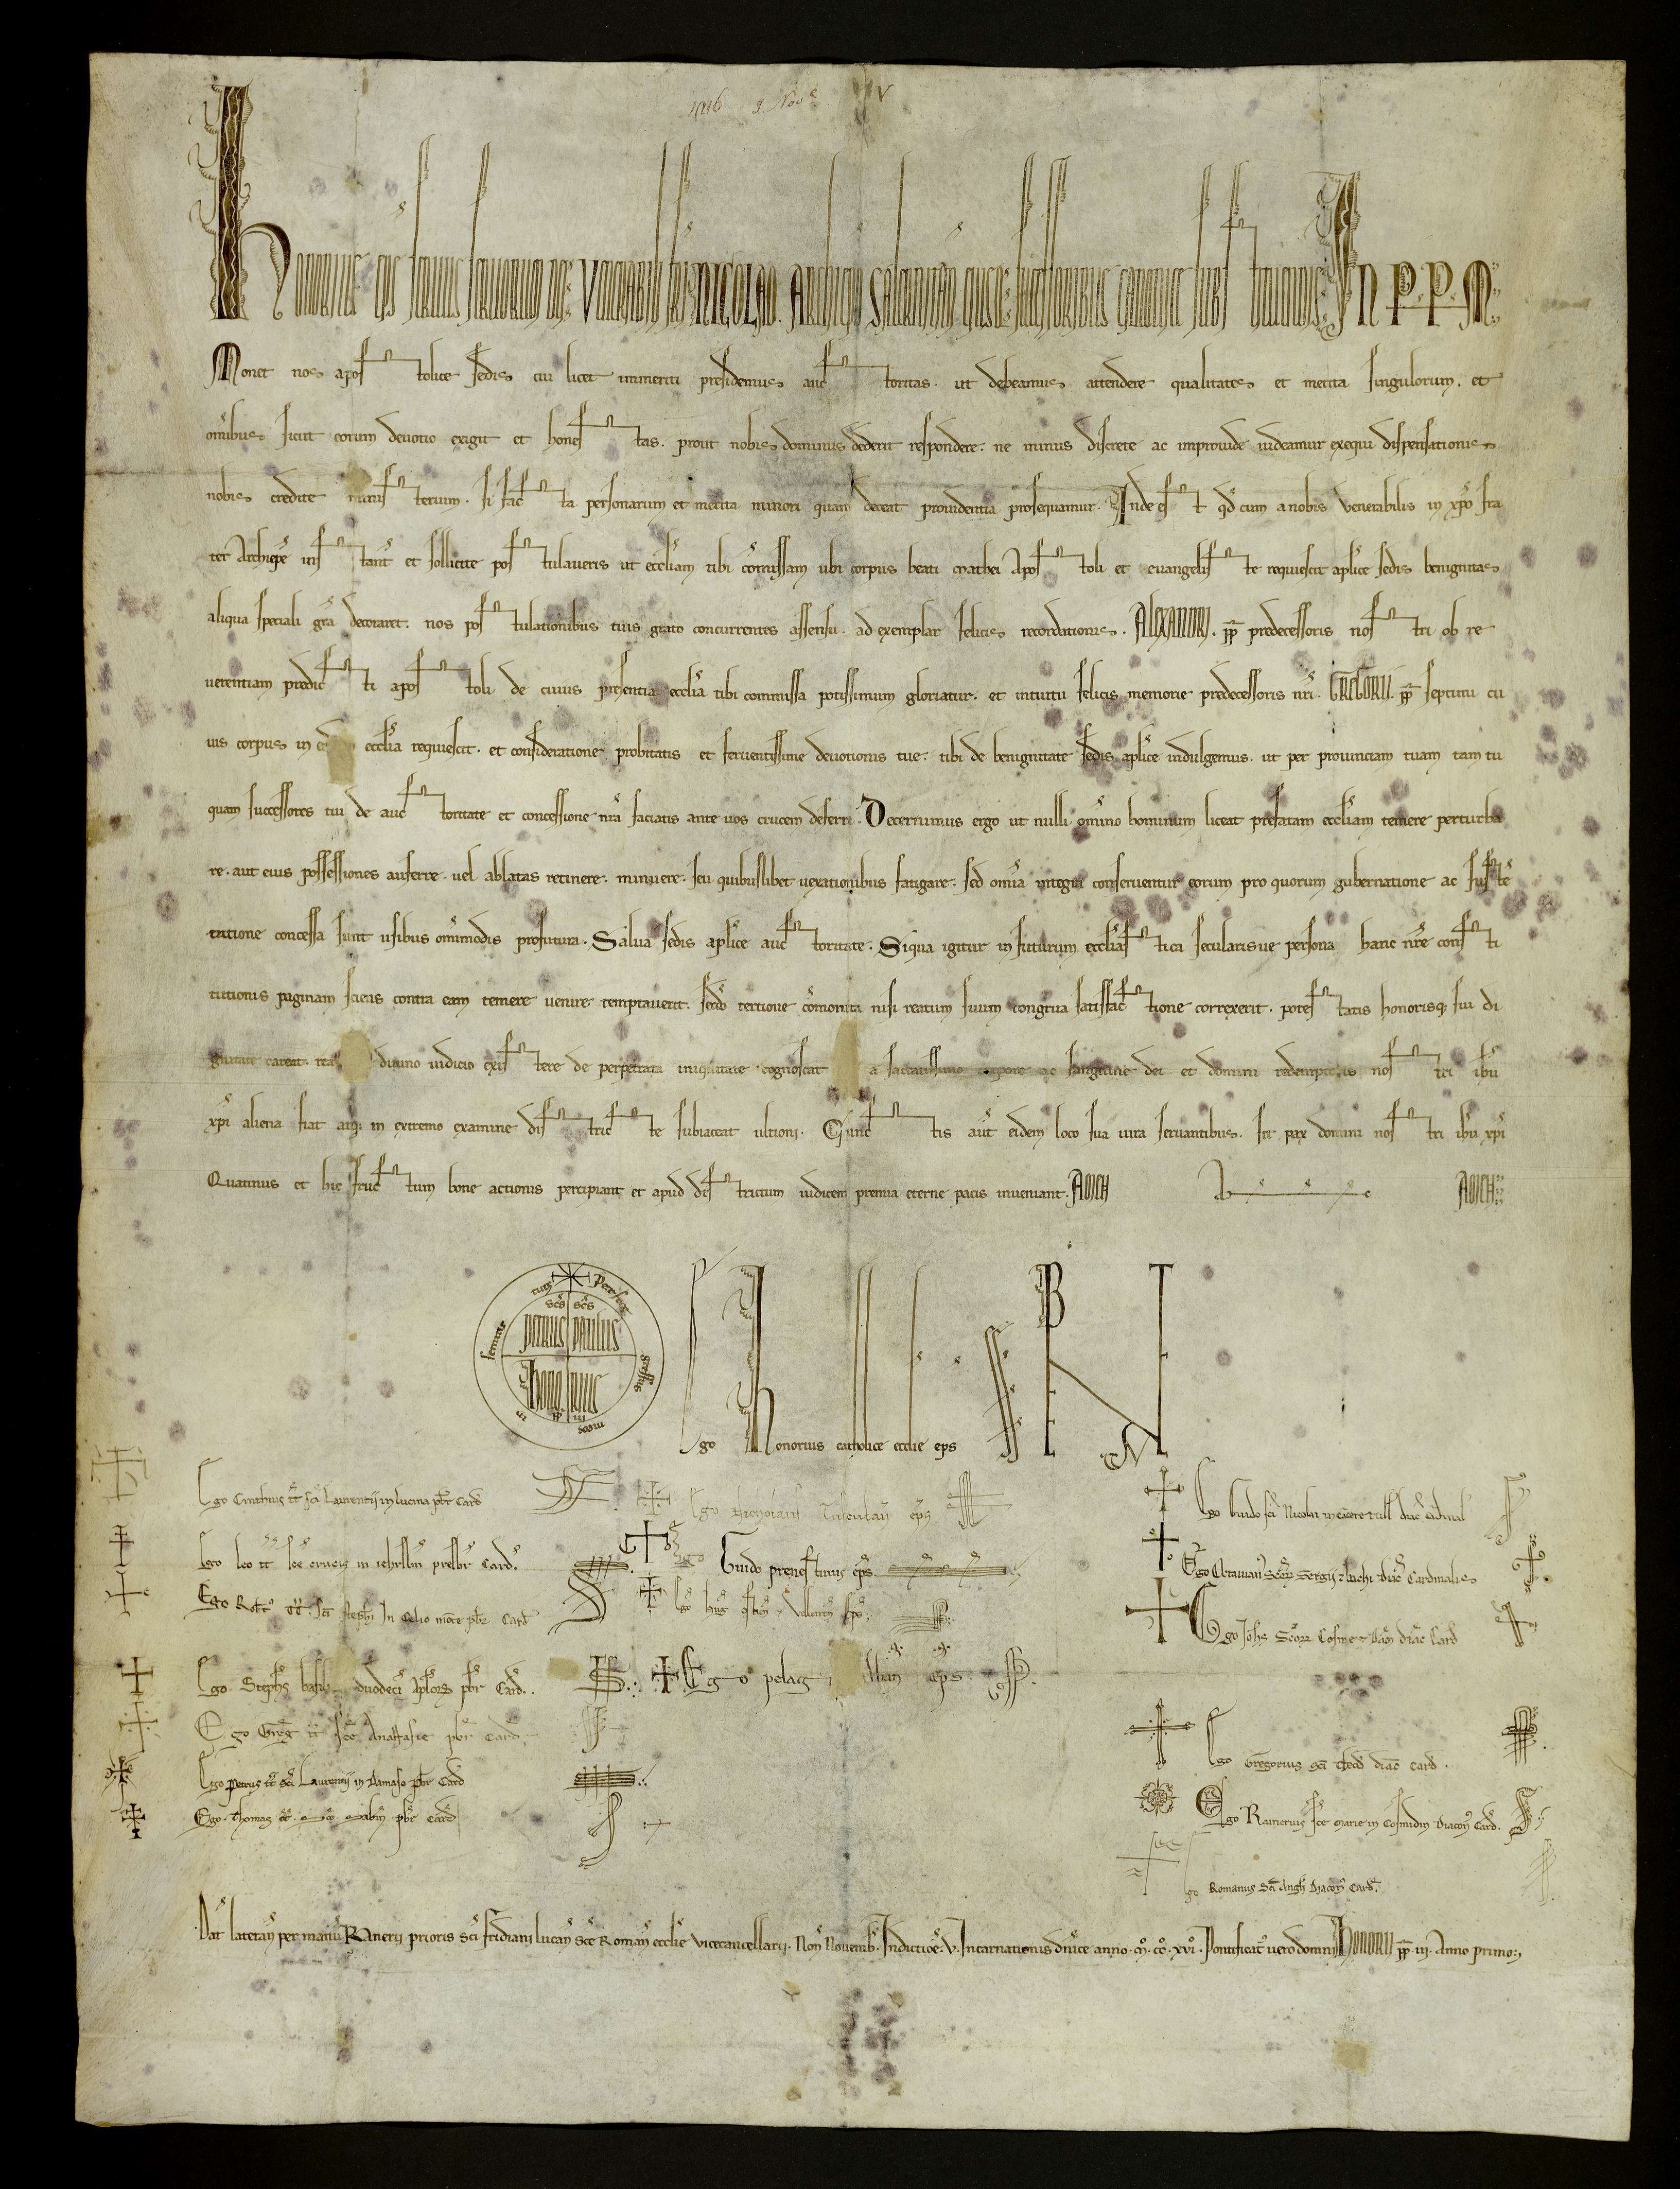 1216 3 Nov.e V
Honorius ep̅s seruus seruorum dei. Venerabili fr̅i NICOLAO. Archiep̅o Salernitan̅ eiusq; successoribus canonice subst̅ituendis. IN P. P. M.
Monet nos apostolice sedis cui licet immeriti presidemus auctoritas. ut debeamus attendere qualitates et merita singulorum. et
om̅ibus sicut eorum deuotio exigit et honestas. prout nobis dominus dederit respondere. ne minus discrete ac improuide uideamur exequi dispensationis
nobis credite ministerium. si facta personarum et merita minori quam deceat prouidentia prosequamur. Inde est qd̅ cum a nobis venerabilis in xp̅o fra
ter Archiep̅e instant̅ et sollicite postulaueris ut eccl̅iam tibi co̅missam ubi corpus beati Mathei Apostoli et euangeliste requiescit ap̅lice sedis benignitas
aliqua speciali gr̅a decoraret. nos postulationibus tuis grato concurrentes assensu. ad exemplar felicis recordationis. ALEXANDRI. pp̅ predecessoris nostri ob re
uerentiam predicti apostoli de cuius presentia eccl̅ia tibi commissa potissimum gloriatur. et intuitu felicis memorie predecessoris nr̅i. GREGORII. pp̅ septimi cu
ius corpus in eccl̅ia requiescit. et consideratione probitatis et feruentissime deuotionis tue. tibi de benignitate sedis ap̅lice indulgemus. ut per prouinciam tuam tam tu
quam successores tui de auctoritate et concessione nr̅a faciatis ante uos crucem deferri. Decernimus ergo ut nulli om̅ino hominum liceat prefatam eccl̅iam temere perturba
re. aut eius possessiones auferre. uel ablatas retinere. minuere. seu quibuslibet uexationibus fatigare. sed om̅ia integra conseruentur eorum pro quorum gubernatione ac susten
tatione concessa sunt usibus om̅imodis profutura. Salua sedis ap̅lice auctoritate. Siqua igitur in futurum eccl̅iastica secularisue persona hanc nr̅e consti
tutionis paginam sciens contra eam temere uenire temptauerit. sec̅do tertioue co̅monita nisi reatum suum congrua satisfactione correxerit. potestatis honorisq; sui di
gnitate careat. rea diuino iudicio existere de perpetrata iniquitate cognoscat a sacratissimo corpore ac sanguine dei et domini redemptoris nostri ih̅u
xp̅i aliena fiat atq; in extremo examine districte subiaceat ultioni. Cunctis aut̅ eidem loco sua iura seruantibus. sit pax domini nostri ih̅u xp̅i
Quatinus et hic fructum bone actionis percipiant et apud districtum iudicem premia eterne pacis inueniant. AMEN A e n AMEN
perfice gressus meos in semitis tuis
sc̅s sc̅s
PETRUS PAULUS
HONORIUS
pp̅ III
Ego Honorius catholice ecclie ep̅s
Ego Cinthius tt̅ sc̅i Laurentij in lucina pb̅r Card̅
Ego Leo tt̅ sc̅e crucis in ieh̅rl̅m presb̅r Card̅.
Ego Rob̅t tt̅. sc̅i steph̅i In Celio mo̅te pb̅r Card̅
Ego Steph̅s basil duodeci̅ Ap̅lor̅ pb̅r Card̅.
Ego Greg̅ tt̅ sc̅e Anastasie pb̅r Card̅.
Ego Petrus tt̅ sc̅i Laurentij in Damaso pb̅r Card̅
Ego. Thomas tt̅. sc̅e sabin̅ pb̅r Card̅
Ego Nicholaus Tusculan̅ ep̅s
Ego Guido prenestinus ep̅s.
Ego Hug̅ ostien̅ Velletren̅ ep̅s
Ego pelag Alban̅ ep̅s
Ego Guido sc̅i Nicolai in carcere tull̅ diac̅ cardinal̅
Ego Octauian̅ Sc̅or̅ Sergij et bachi diac̅ Cardinalis
Ego Joh̅s Sc̅or̅ Cosme et Dam̅ diac̅ Card̅
Ego Gregorius sc̅i theod̅ diac̅ card̅.
Ego Rainerius sc̅e marie in Cosmidin diacon̅ Card̅.
Ego Romanus Sc̅i Angl̅i diacon̅ Card̅.
Dat̅ lateran̅ per manu̅ Ranerii prioris sc̅i fridiani lucan̅ sc̅e Roman̅ eccl̅ie vicecancellarii. Non̅ Nouemb̅. Indictio̅e. V. Incarnationis dn̅ice anno. M̊. CC̊. XVI̊. Pontificat̅ uero domni HONORII pp̅. III. Anno primo.